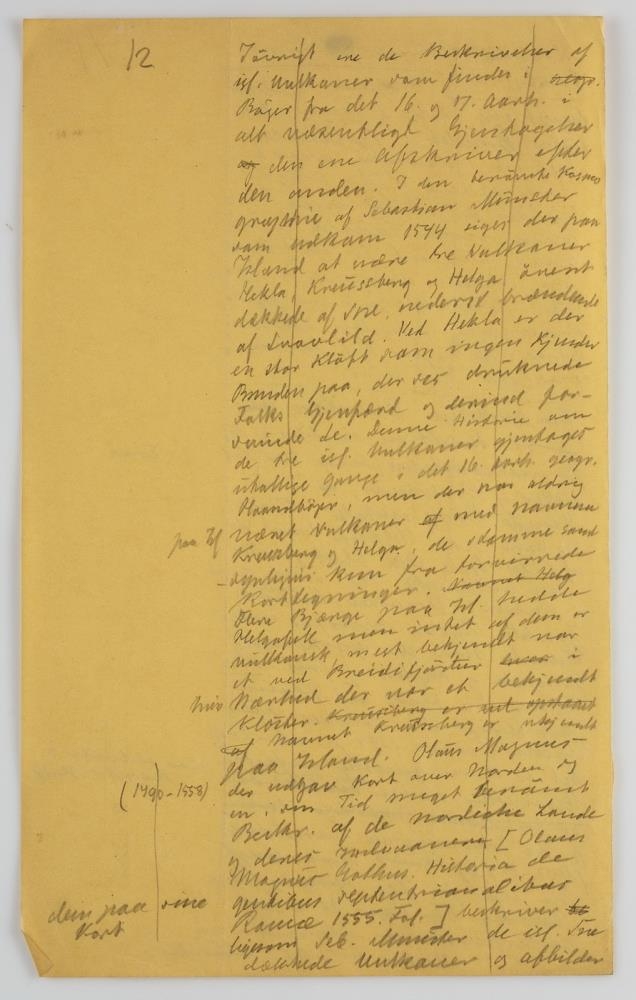 12
Iøvrigt ere de Beskrivelser af
isl. Vulkaner som findes i geogr.
Bøger fra det 16. og 17. Aarh. i
alt væsentligt Gjentagelser
af den ene Afskriver efter
den anden. I den berømte Kosmo
graphie af Sebastian Münster
som udkom 1544 siges der paa
Island at være tre Vulkaner
Hekla, Kreussberg og Helga øverst
dækkede af Sne, nederst brændende
af Svovlild. Ved Hekla er der
en stor Kløft som ingen kjender
Bunden paa, der sees druknede
Folks Gjenfærd og derind for-
svinde de. Denne Historie om
de tre isl. Vulkaner gjentages
utallige Gange i det 16. Aarh. geogr.
Haandbøger, men der har aldrig
paa Isl været Vulkaner af med Navnene
Kreuzberg og Helga, de stamme sand
synligvis kun fra forvirrede
Kortlegninger. Navnet Helg
Flere Bjærge paa Isl. hedde
Helgafell men intet af dem er
vulkansk, mest bekjendt var
et ved Breidifjördur i
hvis Nærhed der var et bekjendt
Kloster. Kreussberg er vel opstaaet
af Navnet Kreussberg er ukjendt
paa Island. Olaus Magnus
(1490-1558) der udgav Kort over Norden og
en i sin Tid meget berømt
Beskr. af de nordiske Lande
og deres Indvaanere [Olaus
Magnus Gothus. Historia de
gentibus septentrionalibus
Romæ 1555. Fol.] beskriver
ligesom Seb. Münster de isl. Sne
dækkede Vulkaner og afbilder
dem paa sine
Kort